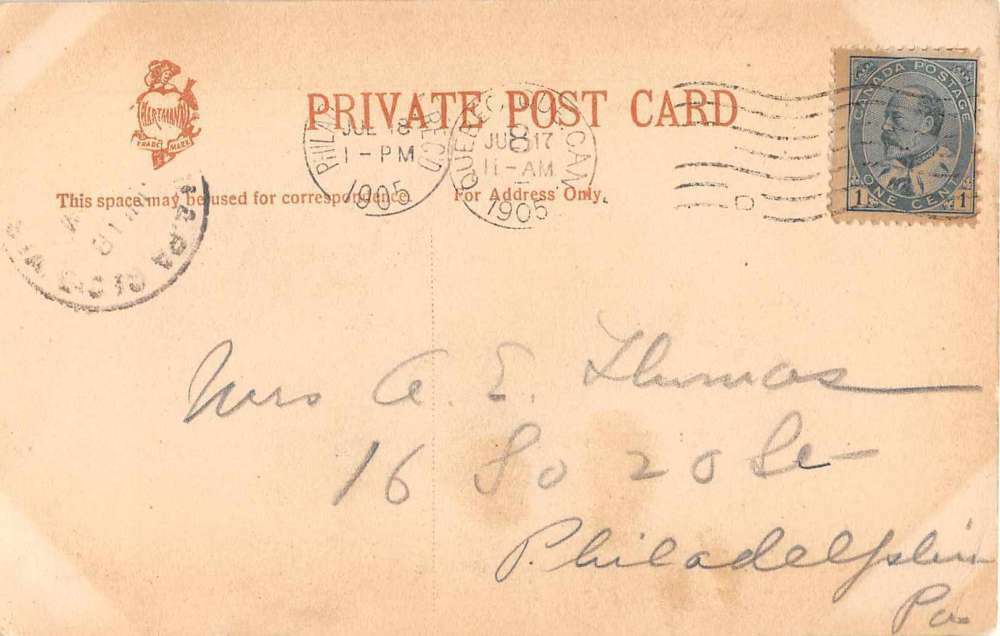 HARTMANN
TRADE MARK
PRIVATE POST CARD
CANADA POSTAGE
1 ONE CENT 1
JUL 18
1-PM
1905
REC'D
QUEBEC, QUE. CAN.
8
JUL 17
11-AM
1905
D
This space may be used for correspondence.
For Address Only.
Mrs A. E. Thomas
16 So 20 St
Philadelphia
Pa